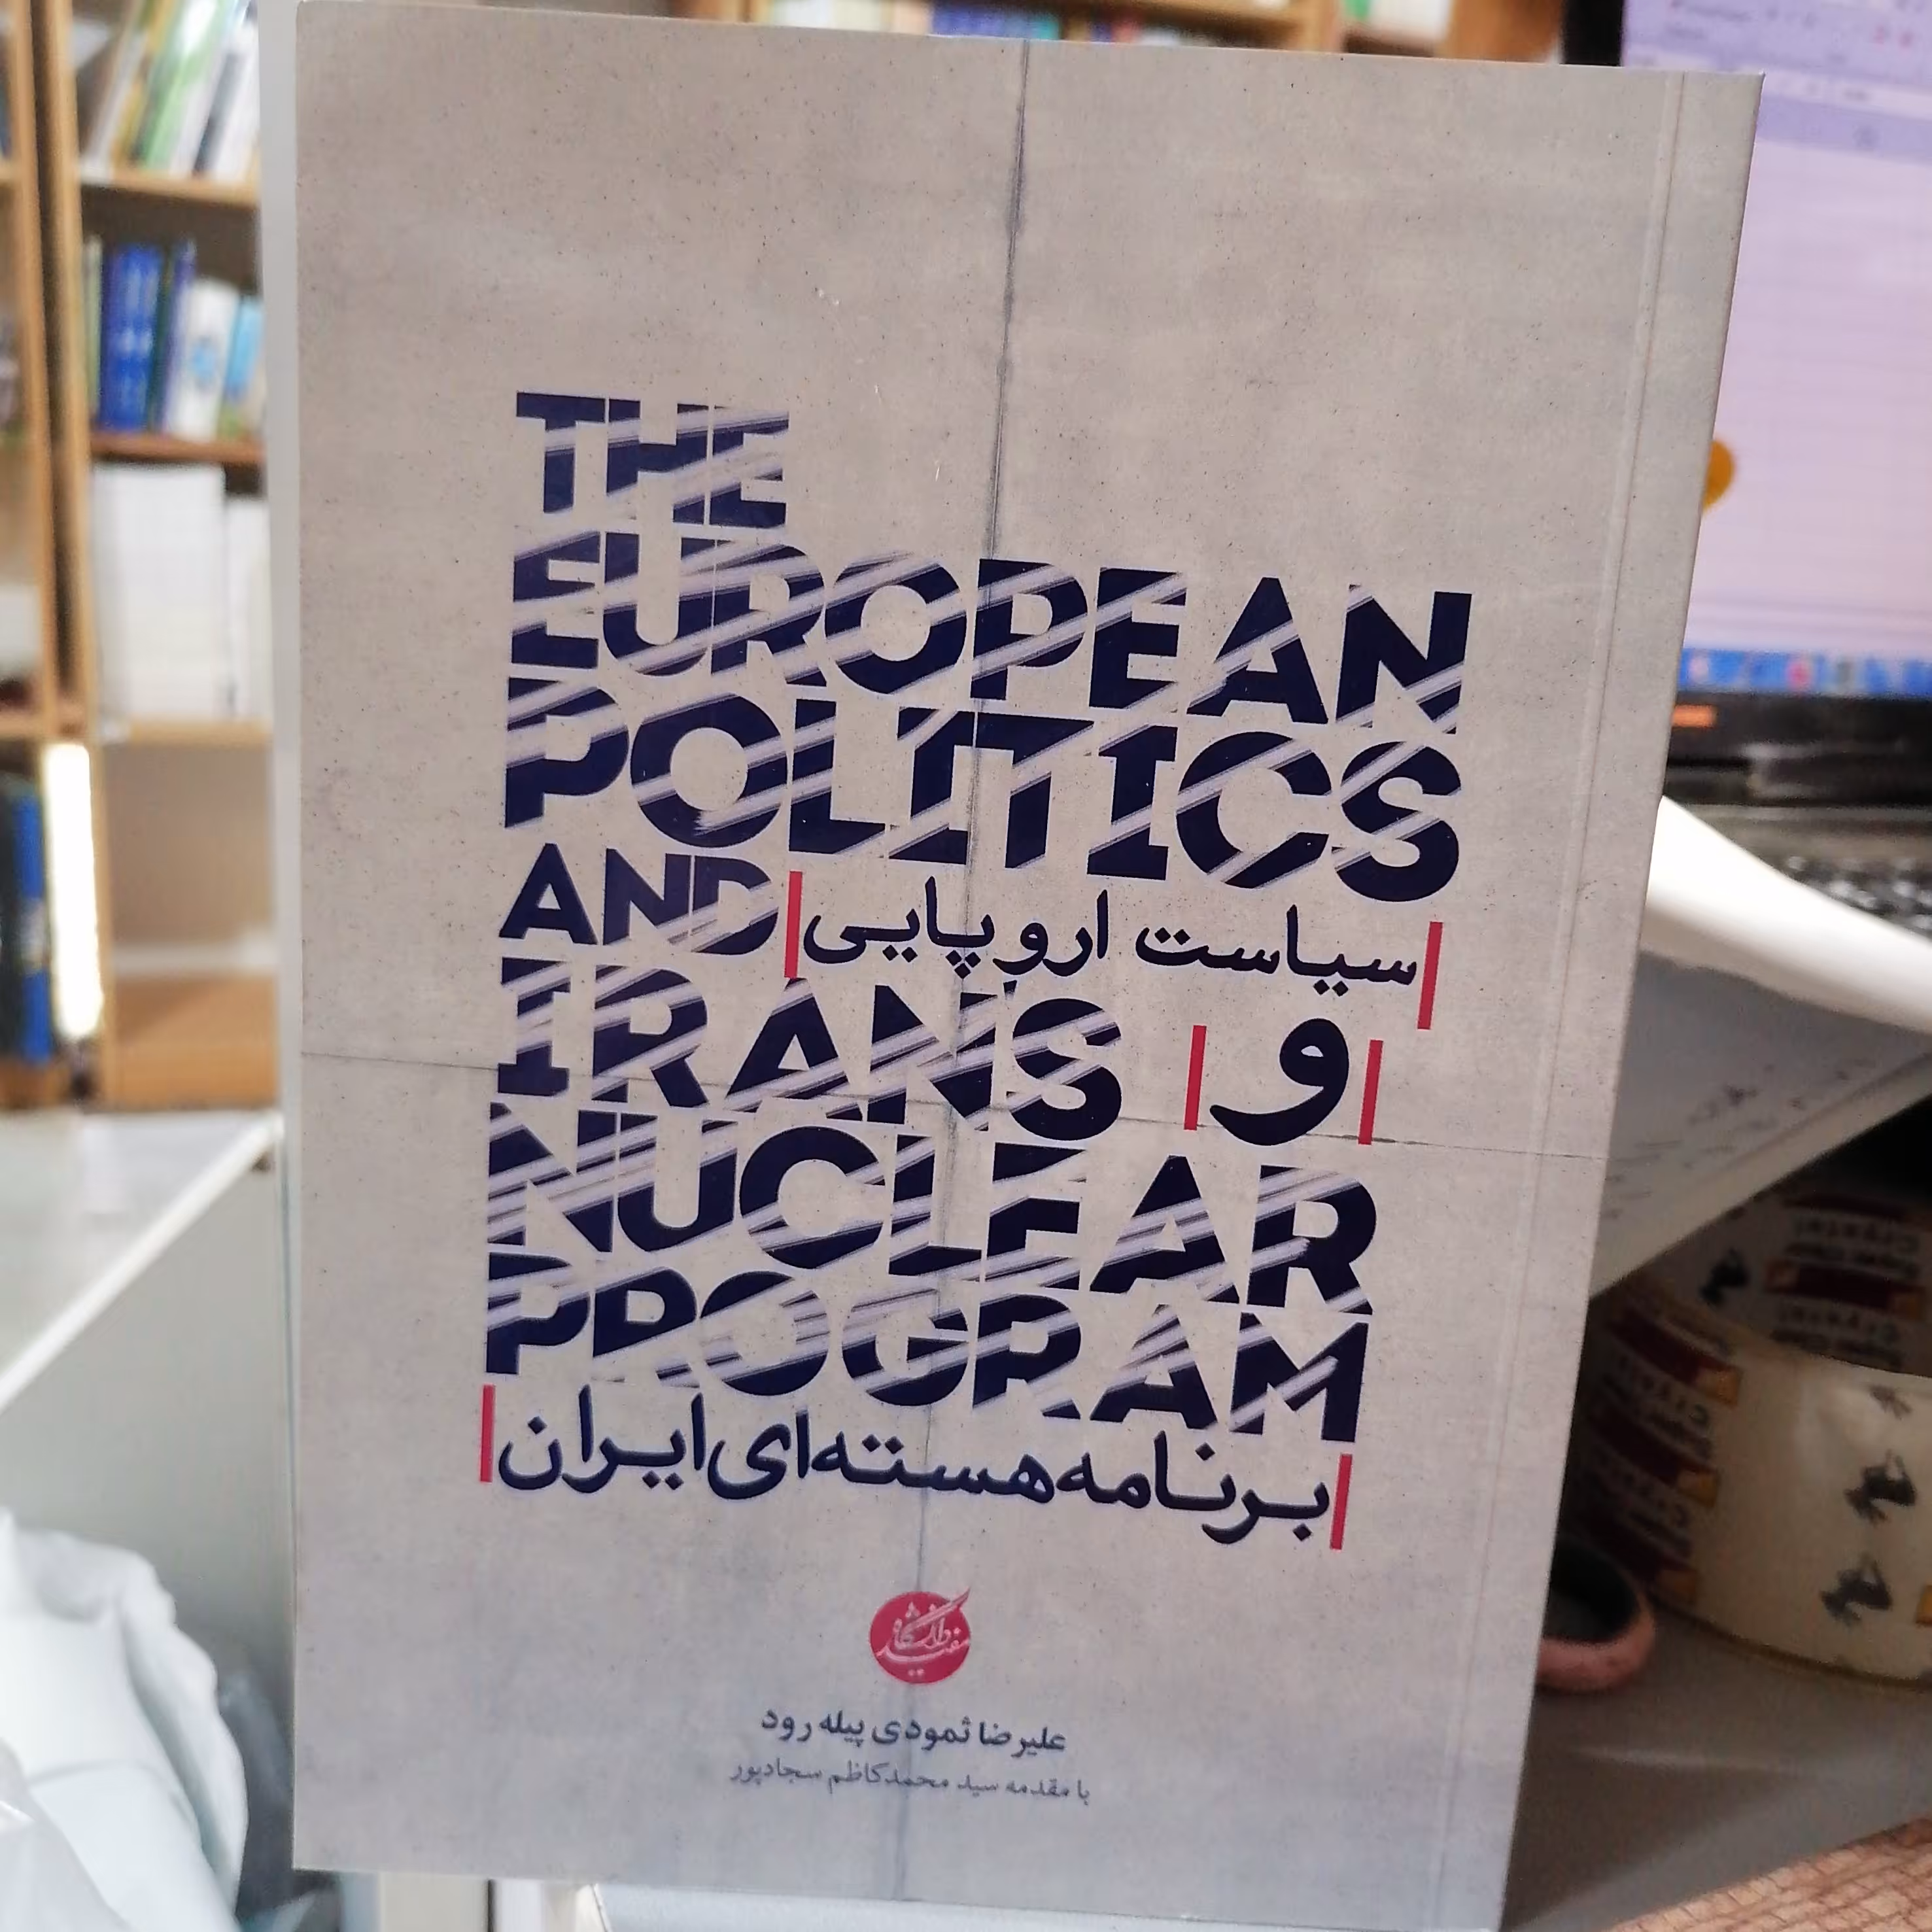 THE
EUROPEAN
POLITICS
AND
سیاست اروپایی
IRANS
و
NUCLEAR
PROGRAM
برنامه هسته‌ای ایران
دانشگاه
مفید
علیرضا ثمودی پیله رود
با مقدمه سید محمدکاظم سجادپور